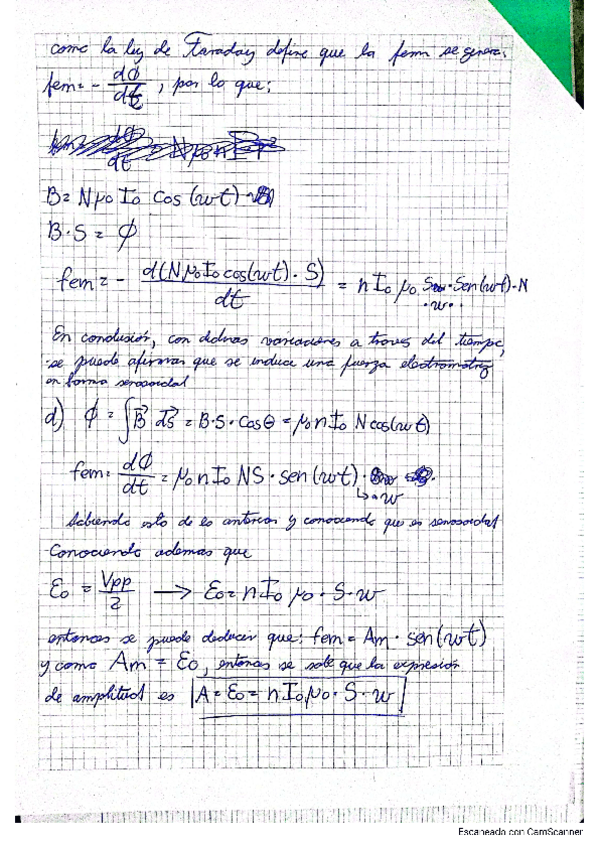 como la ley de Faraday define que la fem se genera.
fem = - dΦ/dt , por lo que:
B = Nμo Io cos (wt)
B·S = Φ
fem = - d(Nμo Io cos(wt) · S)/dt = n Io μo · S · Sen(wt) · N · w
En conclusión, con dichas variaciones a traves del tiempo,
se puede afirmar que se induce una fuerza electromotriz
en forma senosoidal
d) Φ = ∫B⃗ dS⃗ = B·S·Cosθ = μo n Io N cos(wt)
fem = dΦ/dt = μo n Io NS · sen (wt) · w
Sabiendo esto de lo anterior y conociendo que es senosoidal
Conociendo ademas que
Eo = Vpp/2 → Eo = n Io μo · S · w
entonces se puede deducir que: fem = Am · sen(wt)
y como Am = Eo, entonces se sabe que la expresión
de amplitud es |A = Eo = n Io μo · S · w|
Escaneado con CamScanner